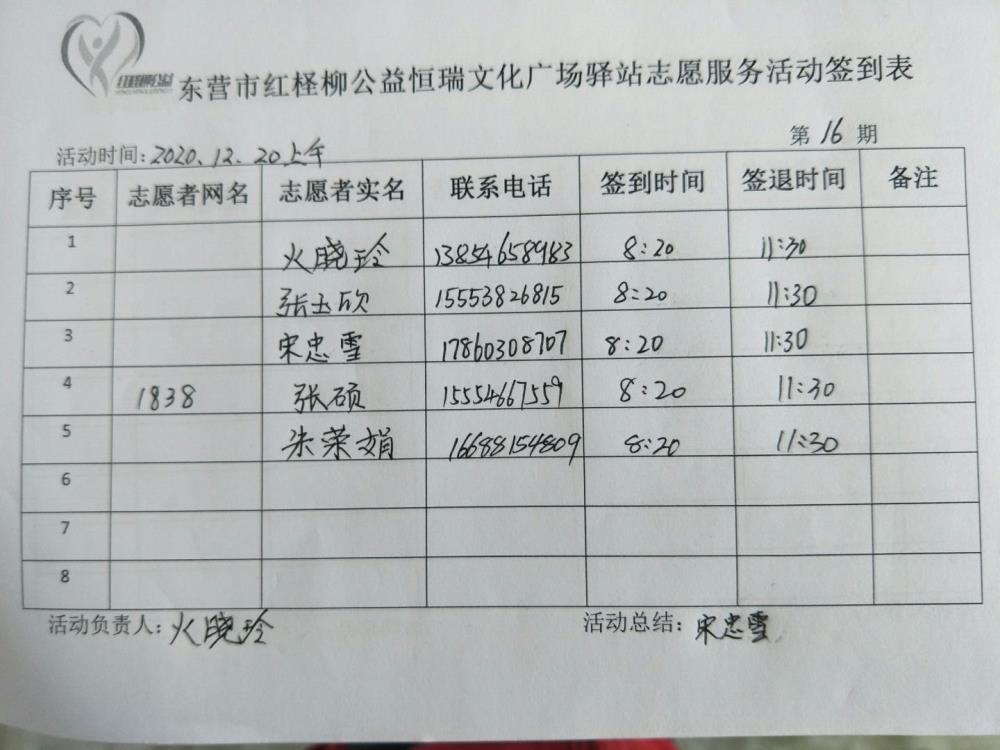 东营市红柽柳公益恒瑞文化广场驿站志愿服务活动签到表
第 16 期
活动时间:2020.12.20上午
序号 志愿者网名 志愿者实名 联系电话 签到时间 签退时间 备注
1 火晓玲 13854658983 8:20 11:30
2 张玉欣 15553826815 8:20 11:30
3 宋忠雪 17860308707 8:20 11:30
4 1838 张硕 15554667559 8:20 11:30
5 朱荣娟 16688154809 8:20 11:30
6
7
8
活动负责人:火晓玲 活动总结:宋忠雪